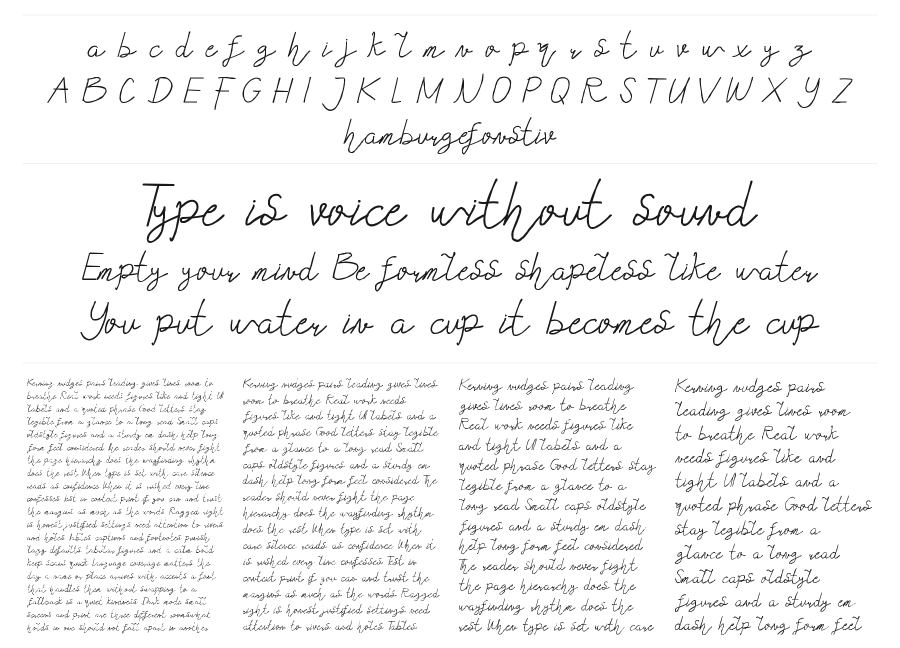 a b c d e f g h i j k l m n o p q r s t u v w x y z
A B C D E F G H I J K L M N O P Q R S T U V W X Y Z
hamburgefonstiv
Type is voice without sound
Empty your mind Be formless shapeless like water
You put water in a cup it becomes the cup
Kerning nudges pairs leading gives lines room to
breathe Real work needs figures like and tight UI
labels and a quoted phrase Good letters stay
legible from a glance to a long read Small caps
oldstyle figures and a sturdy em dash help long
form feel considered The reader should never fight
the page hierarchy does the wayfinding rhythm
does the rest When type is set with care silence
reads as confidence When it is rushed every line
confesses Test in contact print if you can and trust
the margins as much as the words Ragged right
is honest justified settings need attention to rivers
and holes Tables captions and footnotes punish
lazy defaults tabular figures and a calm bold
keep faith Language coverage matters the
day a name or place arrives with accents a font
that handles them without swapping to a
fallback is a quiet kindness Dark mode small
screens and print are three different rooms what
holds in one should not fall apart in another
Kerning nudges pairs leading gives lines
room to breathe Real work needs
figures like and tight UI labels and a
quoted phrase Good letters stay legible
from a glance to a long read Small
caps oldstyle figures and a sturdy em
dash help long form feel considered The
reader should never fight the page
hierarchy does the wayfinding rhythm
does the rest When type is set with
care silence reads as confidence When it
is rushed every line confesses Test in
contact print if you can and trust the
margins as much as the words Ragged
right is honest justified settings need
attention to rivers and holes Tables
Kerning nudges pairs leading
gives lines room to breathe
Real work needs figures like
and tight UI labels and a
quoted phrase Good letters stay
legible from a glance to a
long read Small caps oldstyle
figures and a sturdy em dash
help long form feel considered
The reader should never fight
the page hierarchy does the
wayfinding rhythm does the
rest When type is set with care
Kerning nudges pairs
leading gives lines room
to breathe Real work
needs figures like and
tight UI labels and a
quoted phrase Good letters
stay legible from a
glance to a long read
Small caps oldstyle
figures and a sturdy em
dash help long form feel